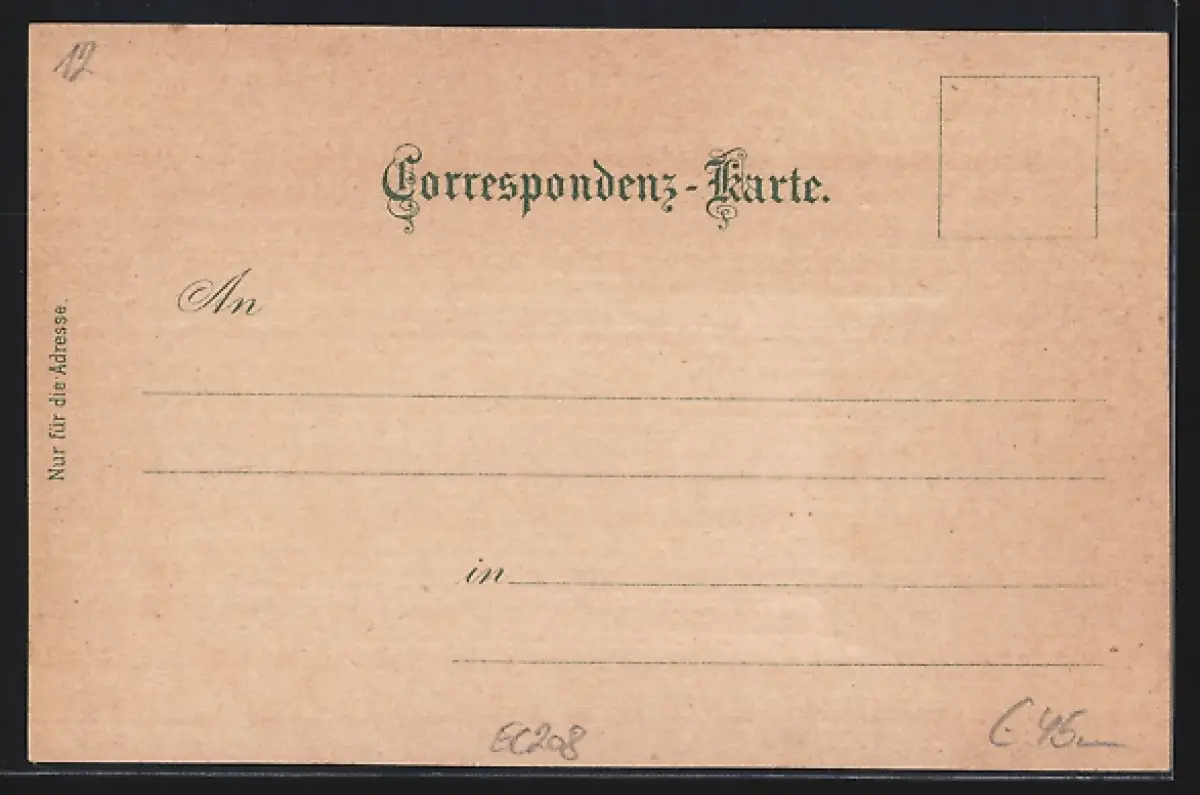 12
Correspondenz-Karte.
An
Nur für die Adresse.
in
EC208
€ 45